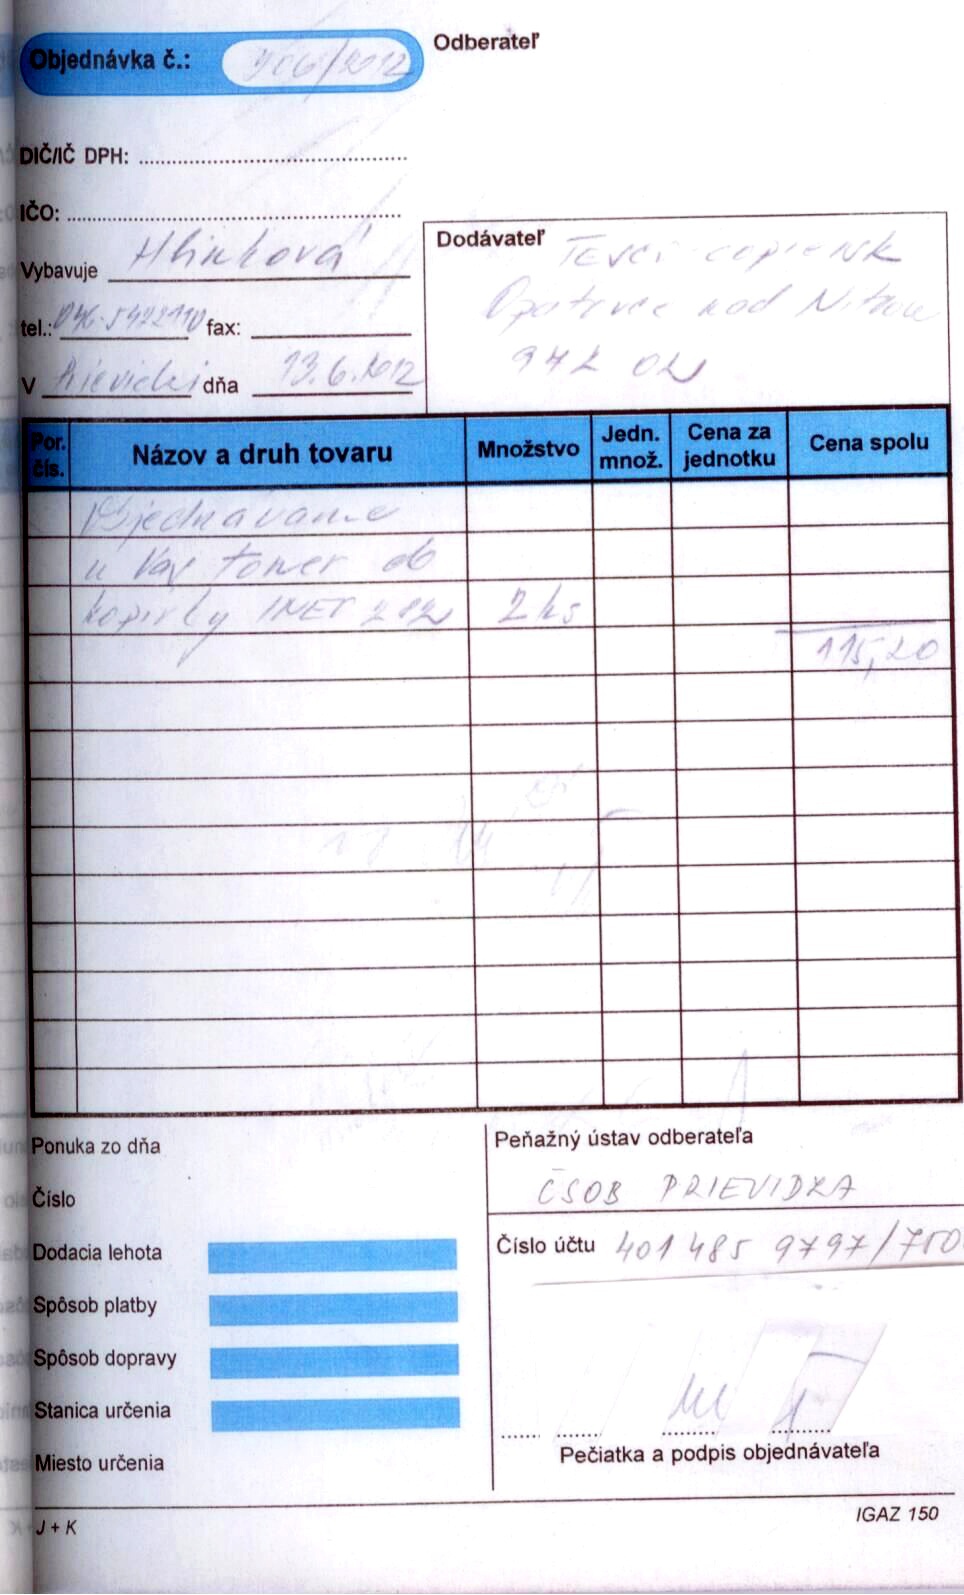 Objednávka č.: /2012
Odberateľ
DIČ/IČ DPH:
IČO:
Vybavuje Hlinková
tel.: 046-5422110 fax:
V Prievidzi dňa 13.6.2012
Dodávateľ
Opatovce nad Nitrou
972 02
Por. čís. Názov a druh tovaru Množstvo Jedn. množ. Cena za jednotku Cena spolu
Objednávame
u Vás toner do
kopírky INEO 282 2 ks
115,20
Ponuka zo dňa
Číslo
Dodacia lehota
Spôsob platby
Spôsob dopravy
Stanica určenia
Miesto určenia
Peňažný ústav odberateľa
ČSOB PRIEVIDZA
Číslo účtu 401 485 9797/750
Pečiatka a podpis objednávateľa
J + K
IGAZ 150